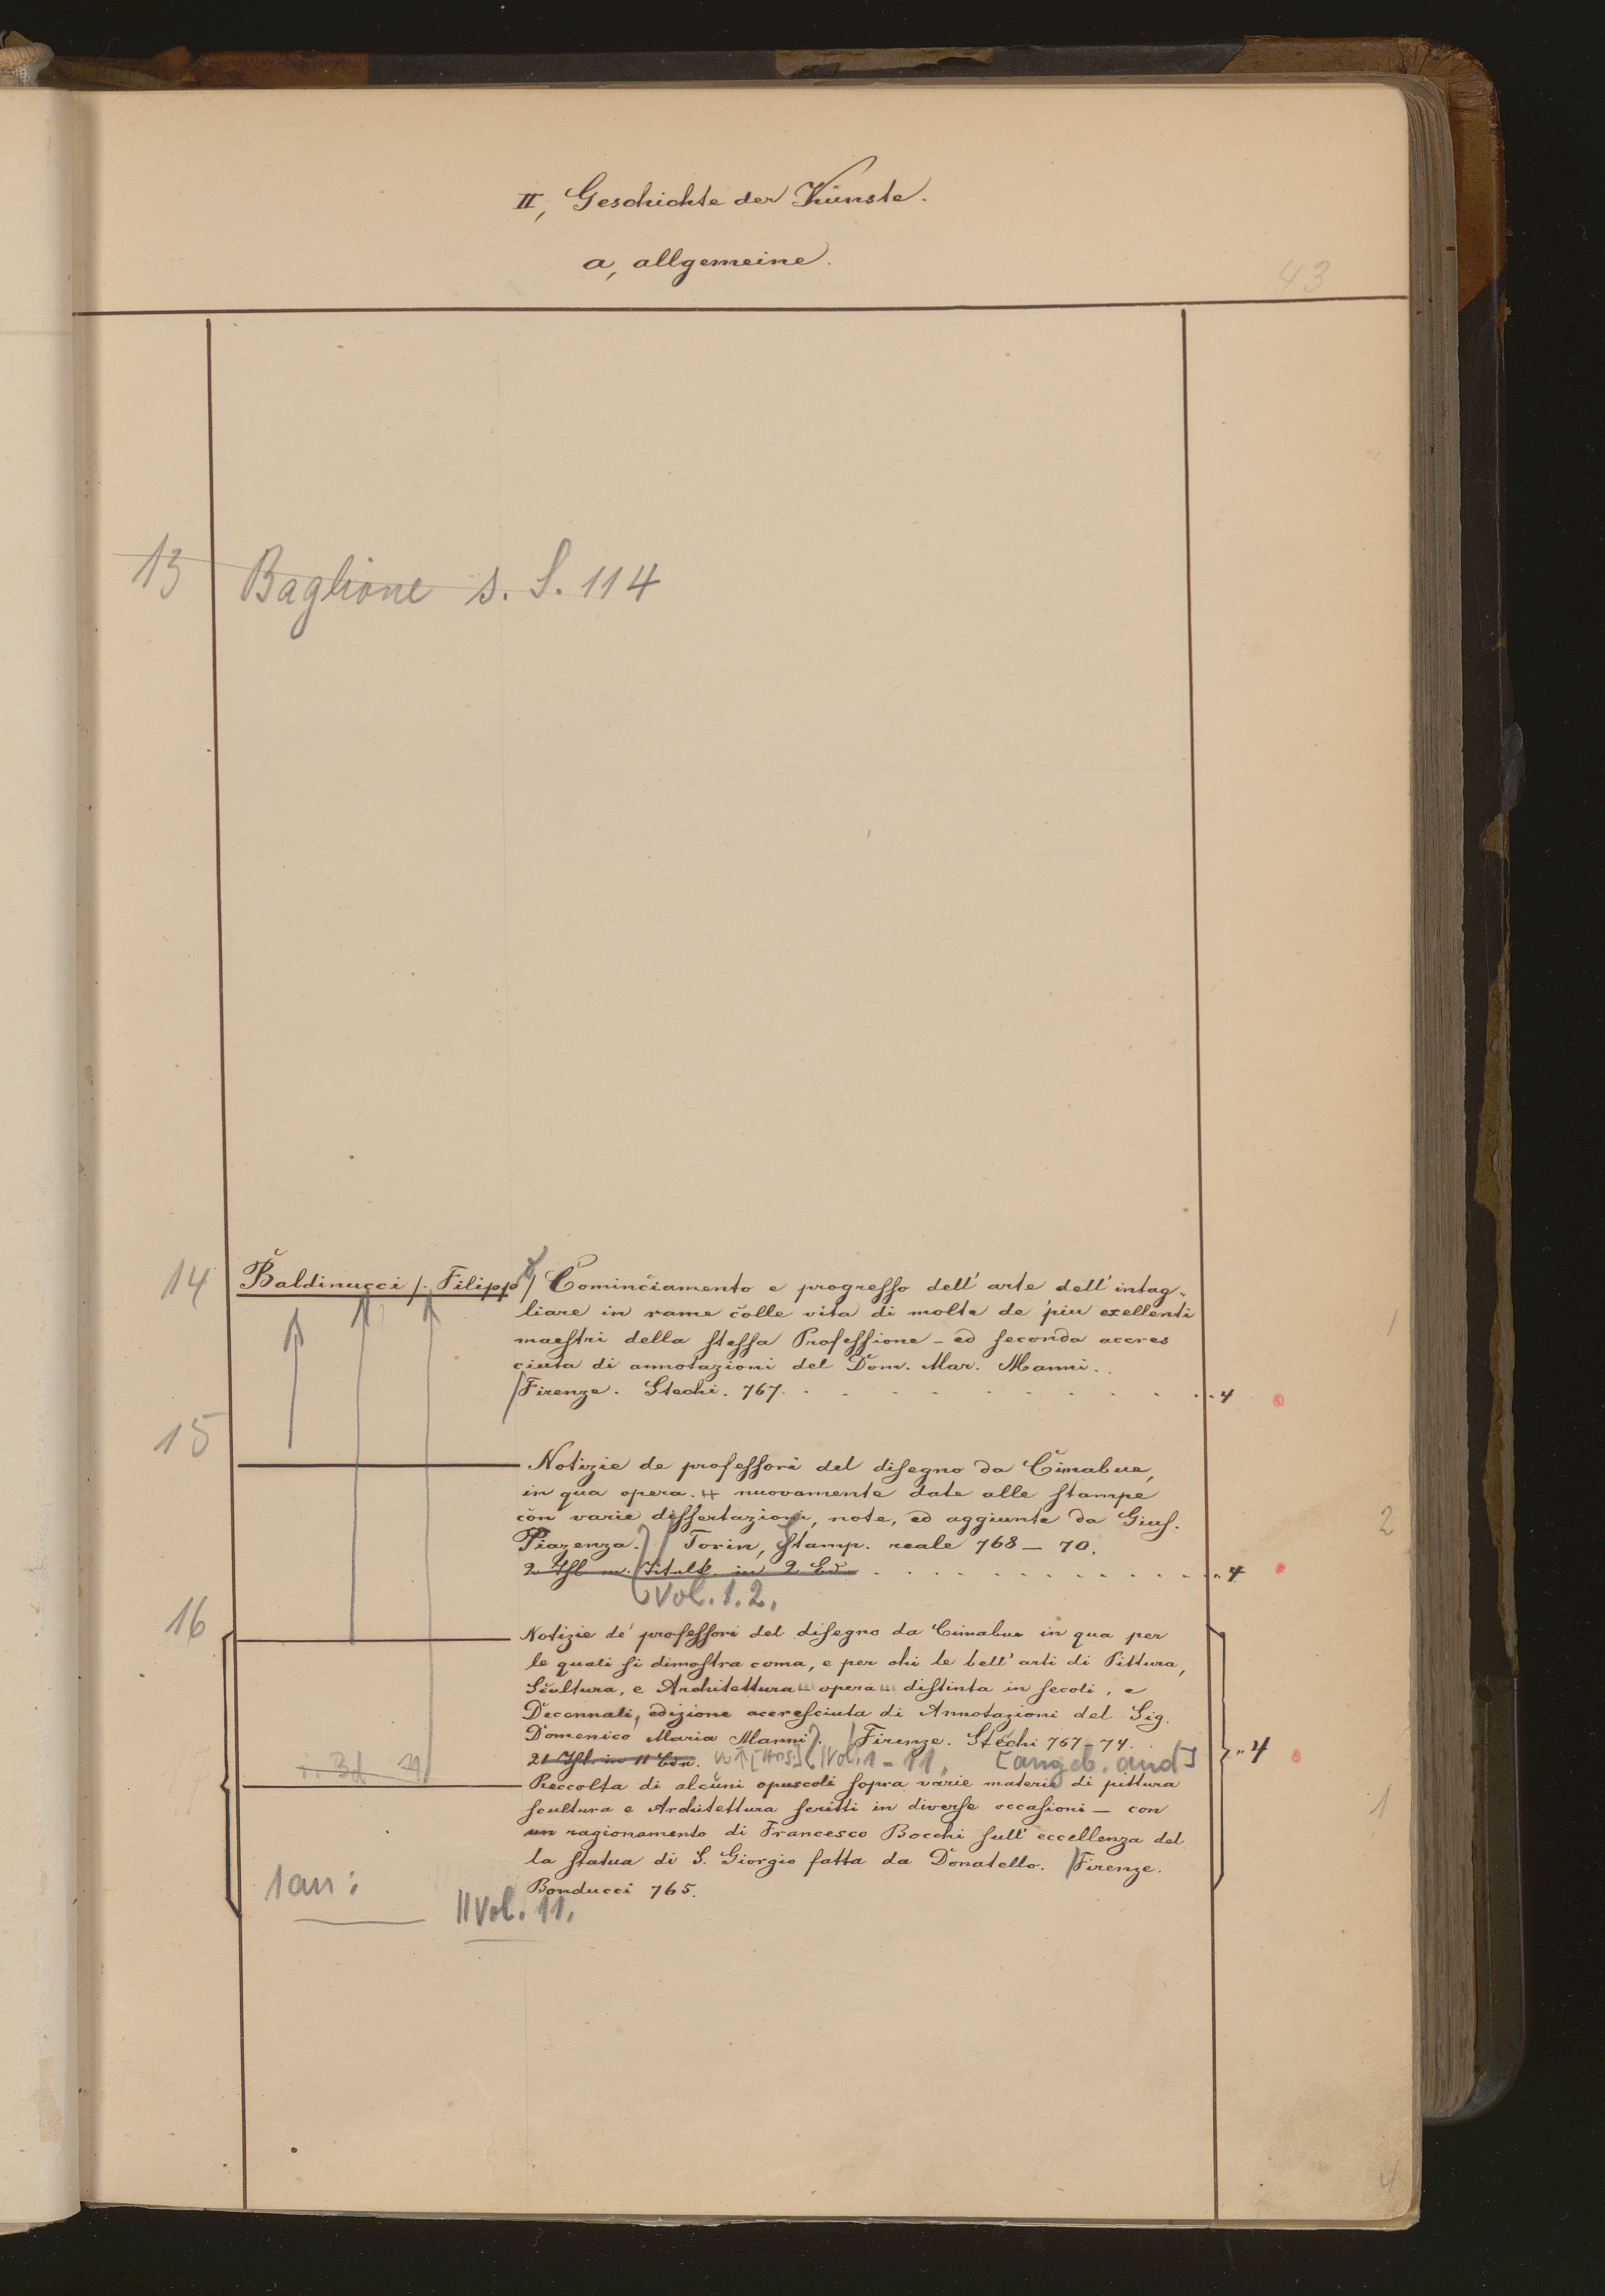 II, Geschichte der Künste.
a, allgemeine.
43
13 Baglione s. S. 114
14 Baldinucci /. Filippo / Cominciamento e progresso dell' arte dell' intag-
liare in rame colle vita di molte de' piu exellenti
1
maestri della stessa Professione - ed seconda accres
ciuta di annotazioni del Dom. Mar. Manni.
Firenze. Stechi. 767. 4
15
Notizie de professori del disegno da Cimabue,
in qua opera. nuovamente date alle stampe
2
con varie dissertazioni, note, ed aggiunte da Gius.
Piazenza. Torin, Stamp. reale 768 - 70.
2 in 2 4
Vol. 1. 2.
16
Notizie de' professori del disegno da Cimabue in qua per
le quali si dimostra coma, e per chi le bell' arti di Pittura,
Scultura, e Architettura opera distinta in secoli, e
Decennali, edizione accresciuta di Annotazioni del Sig.
Domenico Maria Manni. Firenze. Stechi 767 - 74.
21 in 11 Vol. 1 - 11. [angeb. and] 4
Reccolta di alcuni opuscoli sopra varie materie di pittura
scultura e Architettura scritti in diverse occasioni - con
1
un ragionamento di Francesco Bocchi sull' eccellenza del
la statua di S. Giorgio fatta da Donatello. Firenze.
Bonducci 765.
1 an:
Vol. 11.
4